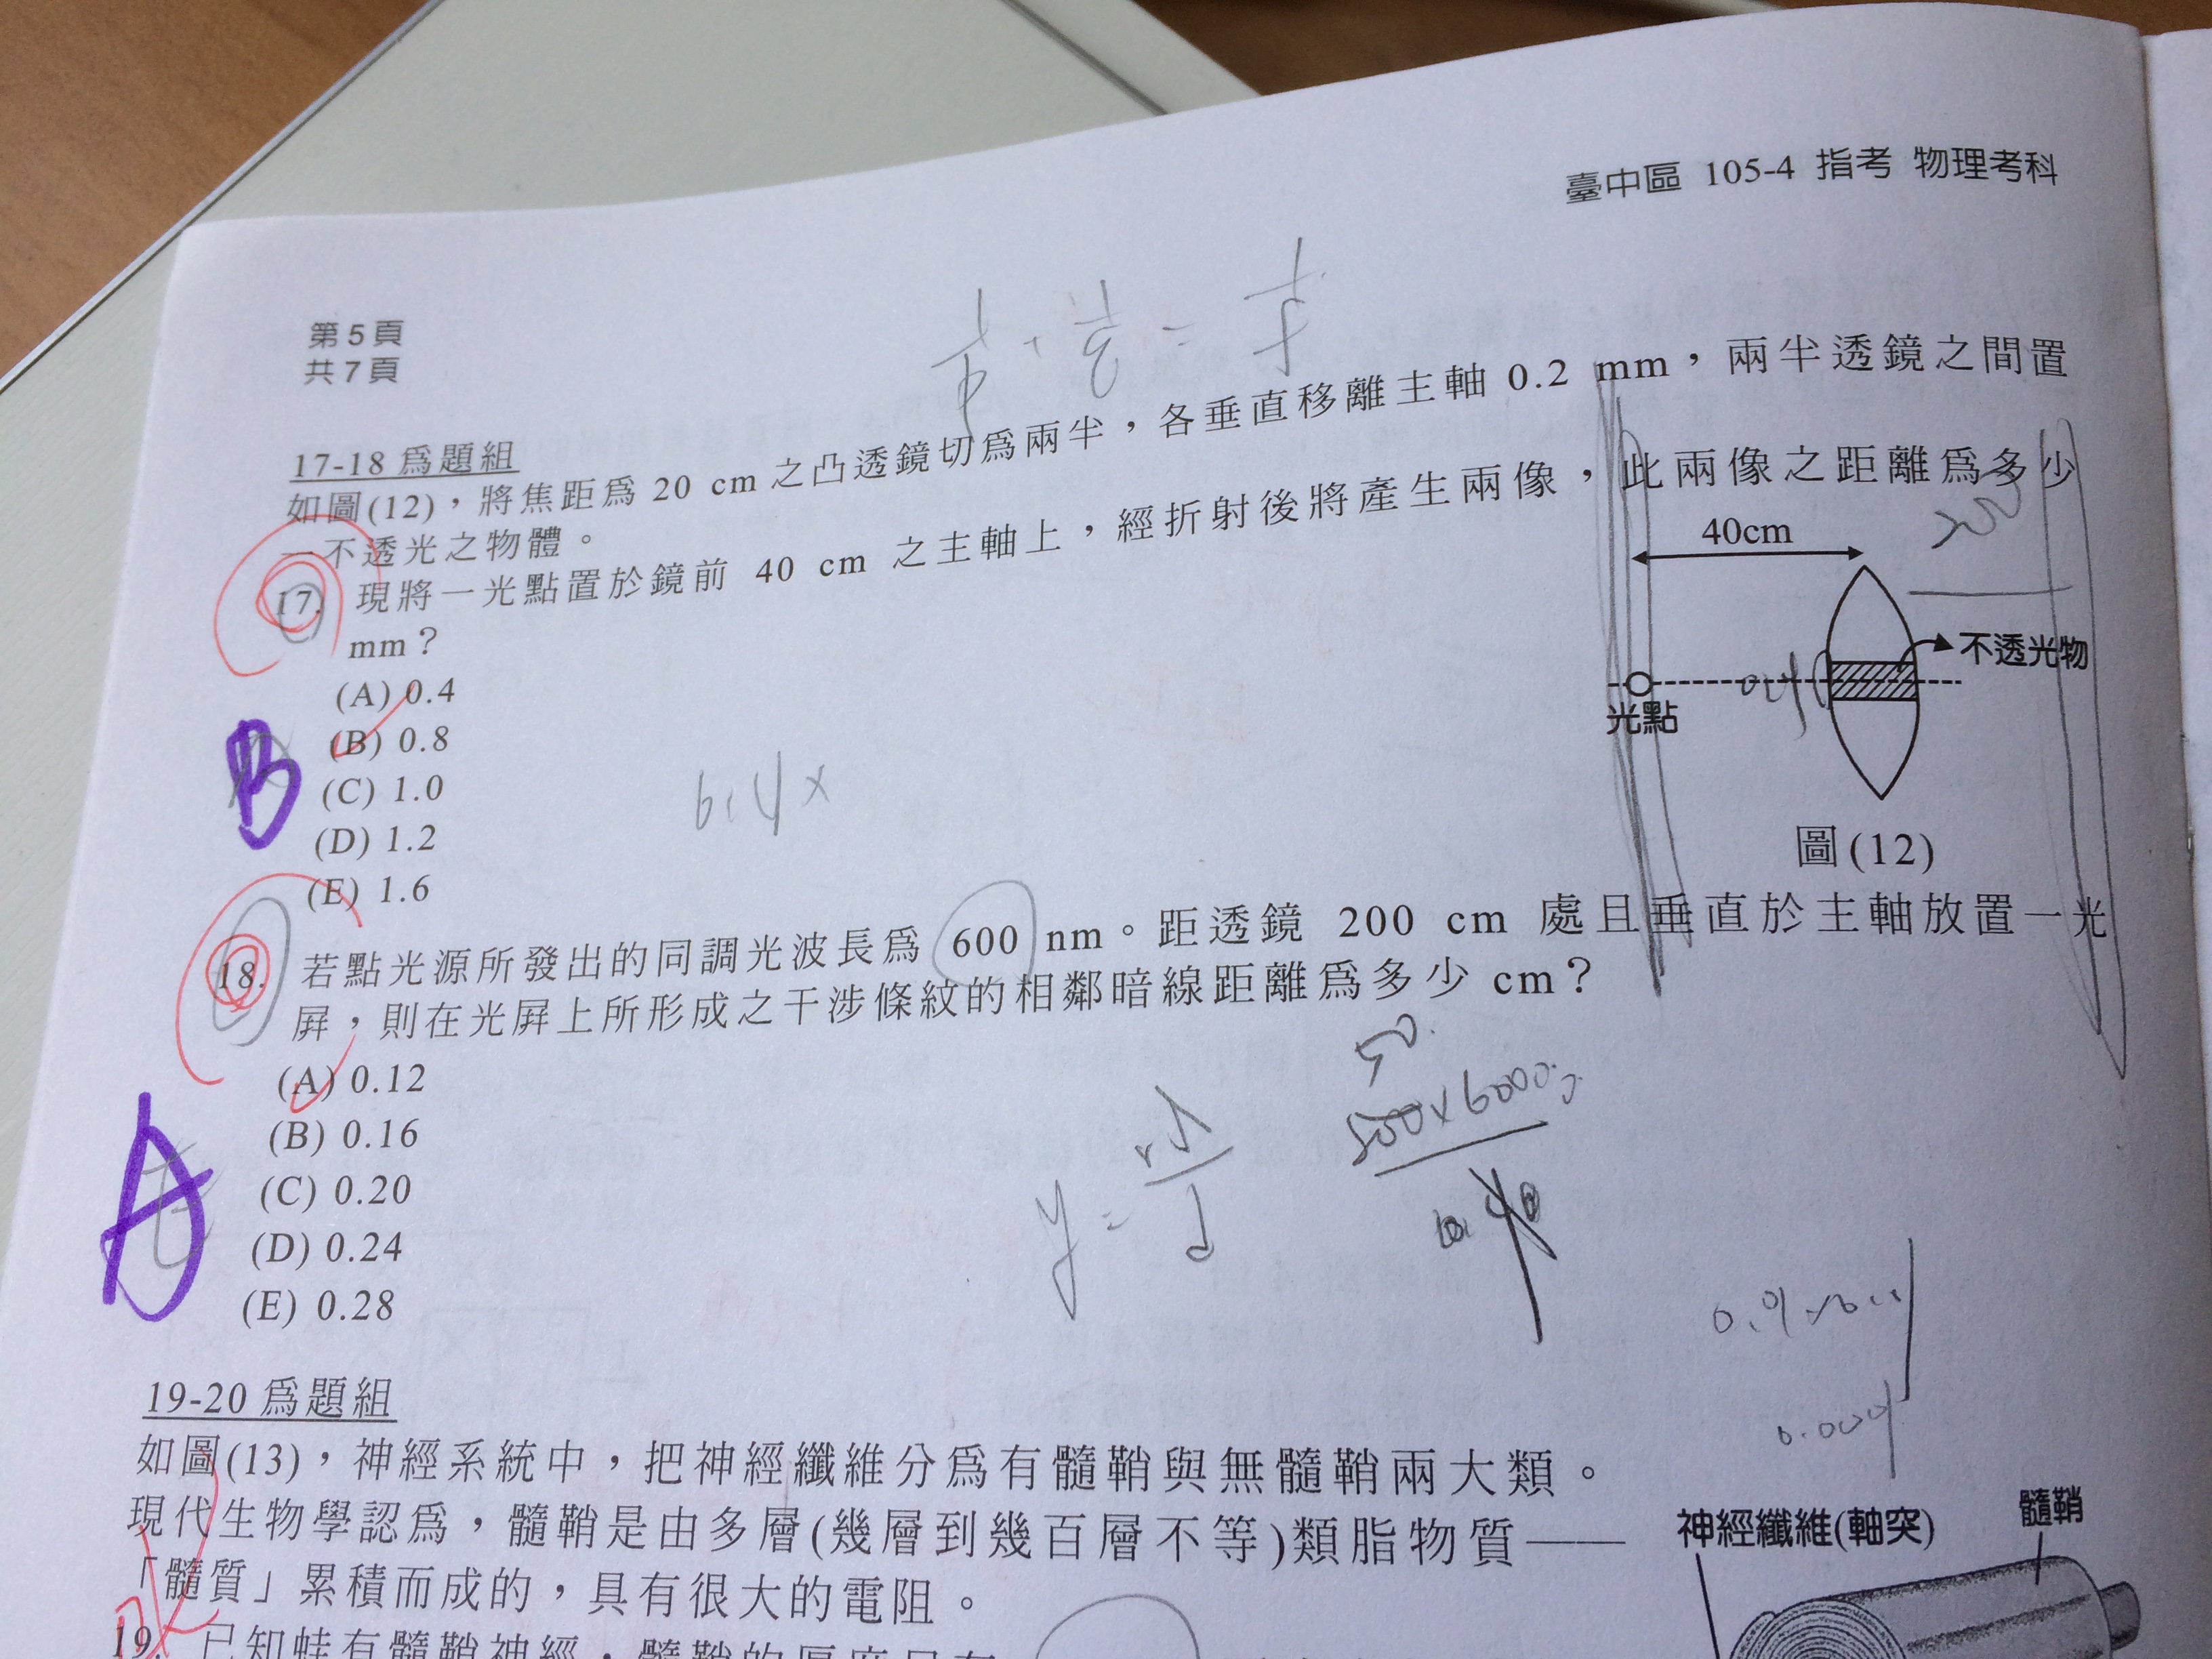 臺中區 105-4 指考 物理考科
第5頁
共7頁
17-18爲題組
如圖(12)，將焦距爲 20 cm 之凸透鏡切爲兩半，各垂直移離主軸 0.2 mm，兩半透鏡之間置
一不透光之物體。
17. 現將一光點置於鏡前 40 cm 之主軸上，經折射後將產生兩像，此兩像之距離爲多少
mm？
(A) 0.4
(B) 0.8
(C) 1.0
(D) 1.2
(E) 1.6
B
0.4×
40cm
不透光物
光點
圖(12)
18. 若點光源所發出的同調光波長爲 600 nm。距透鏡 200 cm 處且垂直於主軸放置一光
屛，則在光屛上所形成之干涉條紋的相鄰暗線距離爲多少 cm？
(A) 0.12
(B) 0.16
(C) 0.20
(D) 0.24
(E) 0.28
A
19-20 爲題組
如圖(13)，神經系統中，把神經纖維分爲有髓鞘與無髓鞘兩大類。
現代生物學認爲，髓鞘是由多層(幾層到幾百層不等)類脂物質——
「髓質」累積而成的，具有很大的電阻。
神經纖維(軸突)
髓鞘
19. 已知蛙有髓鞘神經，髓鞘的厚度只有